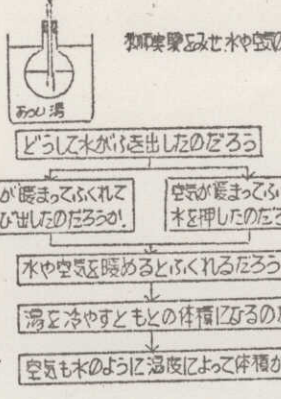 教師実験をみせ水や空気の
あつい湯
どうして水がふき出したのだろう
が暖まってふくれて
び出したのだろうか.
空気が暖まってふ
水を押したのだろ
水や空気を暖めるとふくれるだろう
湯を冷やすともとの体積になるのだ
空気も水のように温度によって体積が